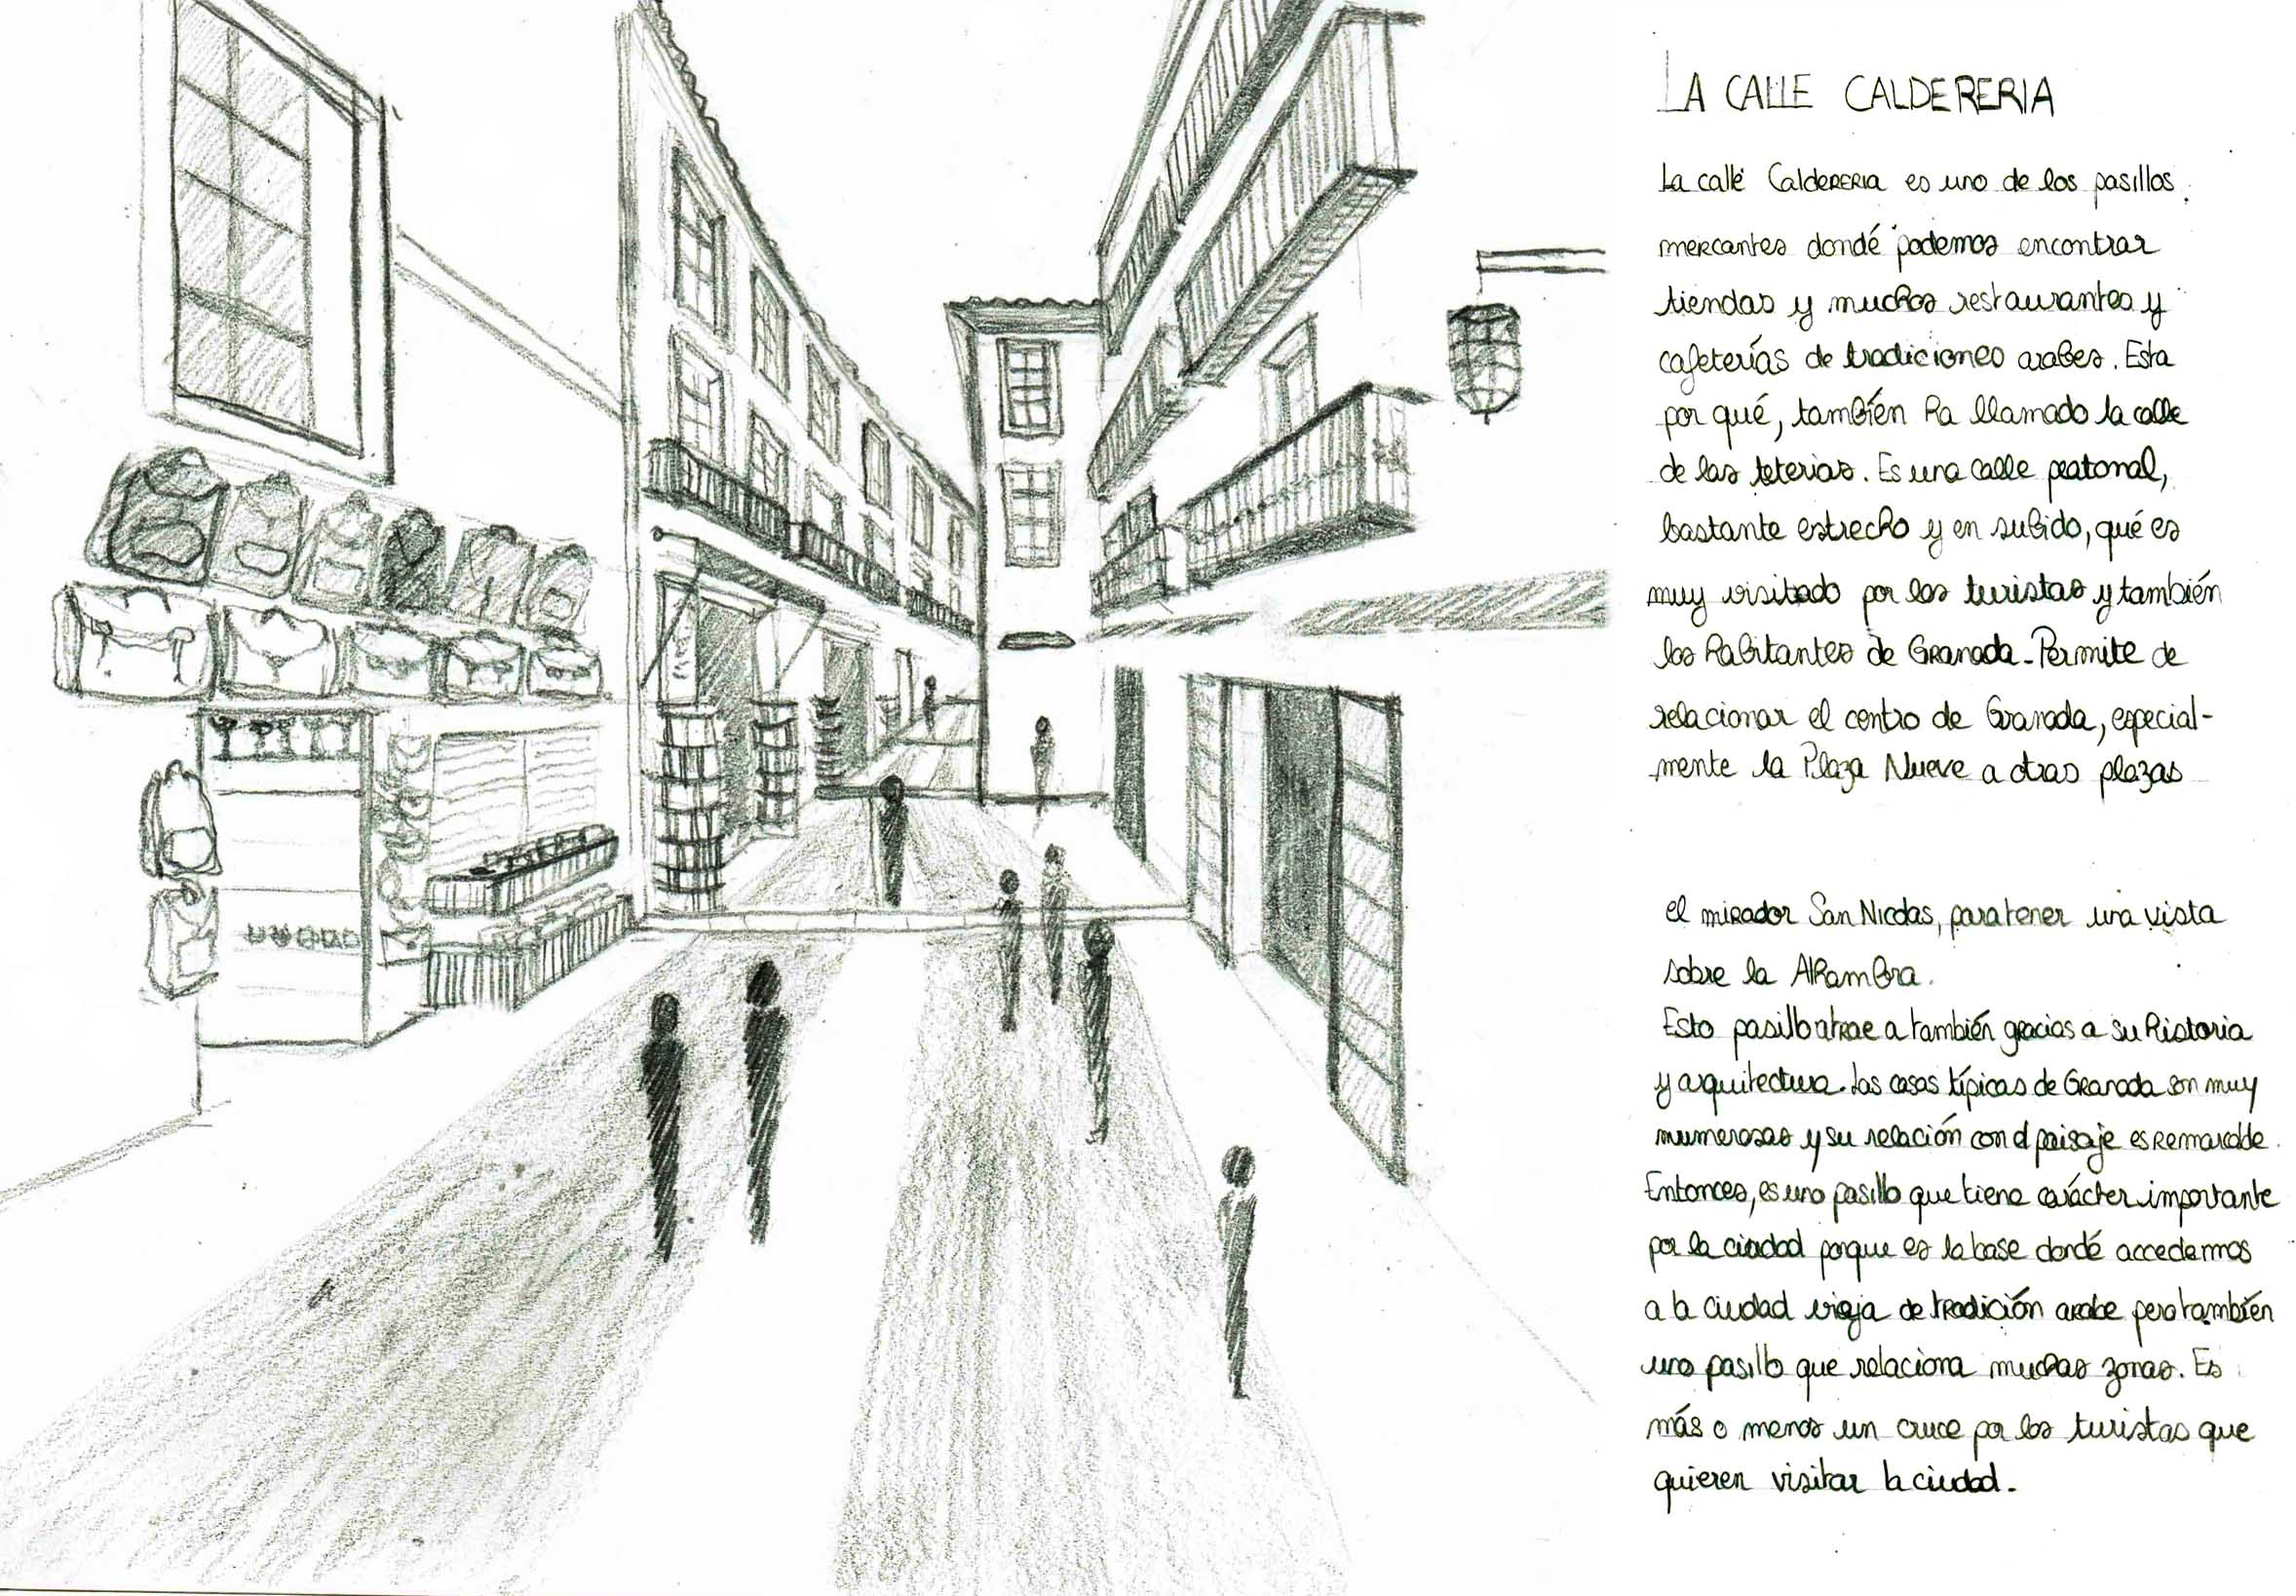 LA CALLE CALDERERIA
La calle CaldERERIA es uno de los pasillos
mercantes dondé podemos encontrar
tiendas y muchos restaurantes y
cafeterías de tradiciones arabes. Esta
por qué, también ha llamado la calle
de las teterias. Es una calle peatonal,
bastante estrecho y en subido, qué es
muy visitado por los turistas y también
los habitantes de Granada. Permite de
relacionar el centro de Granada, especial-
mente la Plaza Nueve a otras plazas
el mirador San Nicolas, para tener una vista
sobre la Alhambra.
Esto pasillo atrae a también gracias a su historia
y arquitectura. Las casas típicas de Granada son muy
numerosas y su relación con el paisaje es remarcable.
Entonces, es uno pasillo que tiene carácter importante
por la ciudad porque es la base dondé accedemos
a la ciudad vieja de tradición arabe pero también
uno pasillo que relaciona muchas zonas. Es
más o menos un cruce por los turistas que
quieren visitar la ciudad.